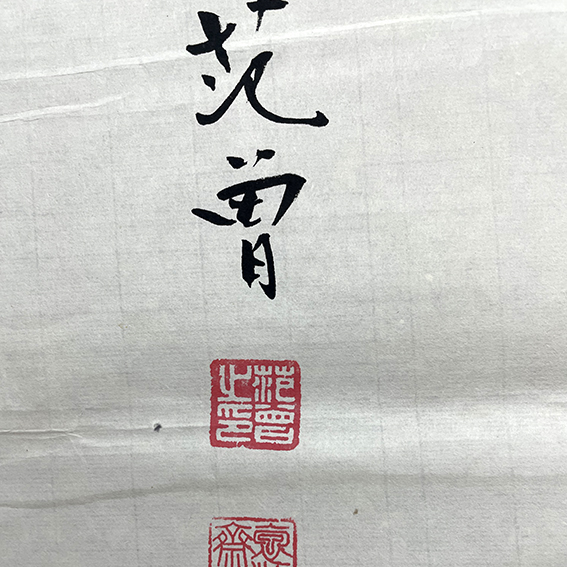 范
曾
范曾
之印